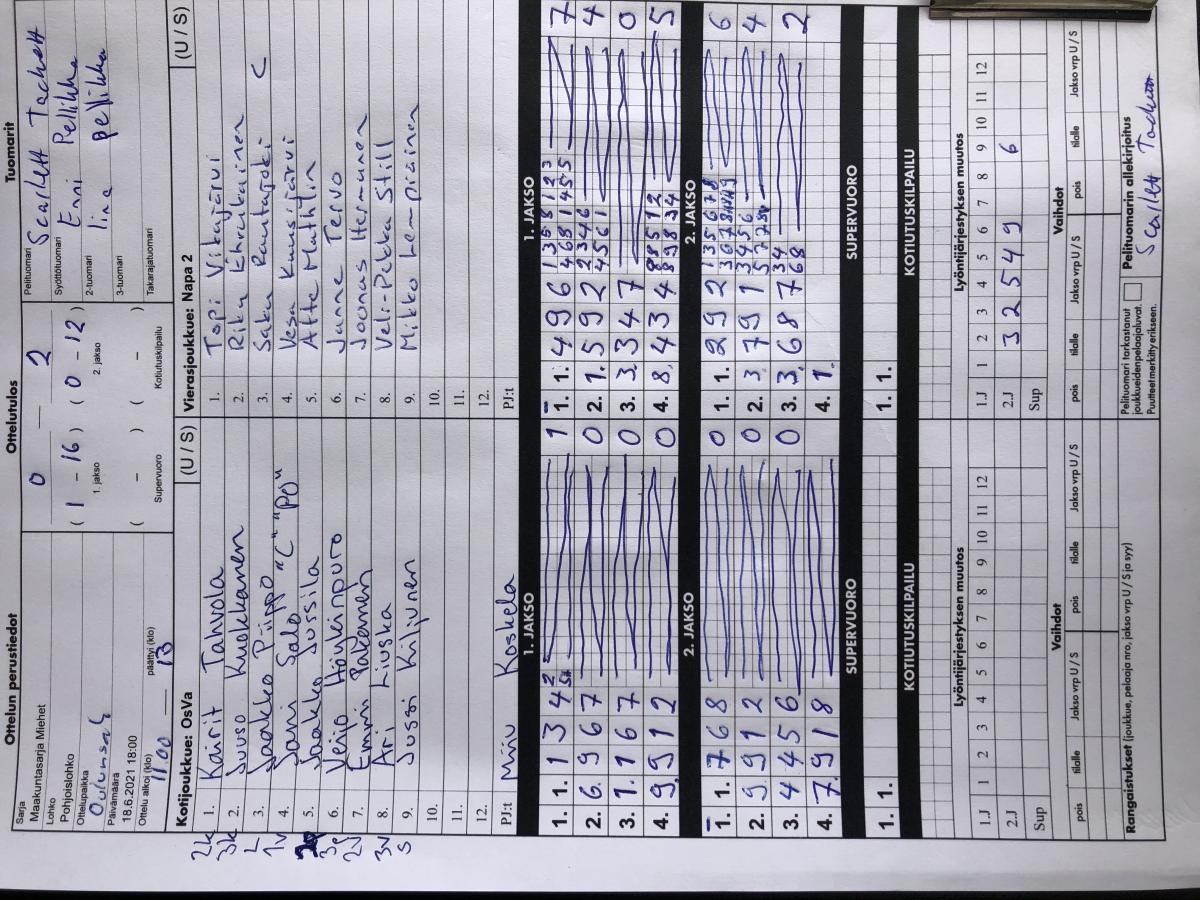 Ottelun perustiedot
Sarja
Maakuntasarja Miehet
Lohko
Pohjoislohko
Ottelupaikka
Oulunsalo
Päivämäärä
18.6.2021 18:00
Ottelu alkoi (klo) päättyi (klo)
11.00 13
Ottelutulos
0 2
( 1 - 16 ) ( 0 - 12 )
1. jakso 2. jakso
( - ) ( - )
Supervuoro Kotiutuskilpailu
Tuomarit
Pelituomari Scarlett Tackett
Syöttötuomari Enni Pellikka
2-tuomari Iina Pellikka
3-tuomari
Takarajatuomari
Kotijoukkue: OsVa (U / S)
2k 1. Kairit Tahvola
3k 2. Juuso Kuokkanen
L 3. Jaakko Piippo
1v 4. Sami Salo "C" "PO"
5. Jaakko Jussila
3p 6. Veijo Höykinpuro
2v 7. Emmi Pakanen
3v 8. Ari Liuska
S 9. Jussi Kiljunen
10.
11.
12.
PJ:t Miiu Koskela
Vierasjoukkue: Napa 2 (U / S)
1. Topi Vikajärvi
2. Riku Ehrukainen
3. Saku Rantajoki C
4. Vesa Kuusijärvi
5. Atte Mathlin
6. Janne Tervo
7. Joonas Hermunen
8. Veli-Pekka Still
9. Mikko Lempiäinen
10.
11.
12.
PJ:t
1. JAKSO 1. JAKSO
1. 1. 1 3 4 1
2. 6. 9 6 7 0
3. 1. 1 6 7 0
4. 9. 9 1 2 0
1. 1. 4 9 6 7
2. 1. 5 9 2 4
3. 3. 3 4 7 0
4. 8. 4 3 4 5
2. JAKSO 2. JAKSO
1. 1. 7 6 8 0
2. 9. 9 1 2 0
3. 4 4 5 6 0
4. 7. 9 1 8
1. 1. 2 9 2 6
2. 3. 7 9 1 4
3. 3. 6 8 7 2
4. 1.
SUPERVUORO SUPERVUORO
1. 1. 1. 1.
KOTIUTUSKILPAILU KOTIUTUSKILPAILU
Lyöntijärjestyksen muutos Lyöntijärjestyksen muutos
1 2 3 4 5 6 7 8 9 10 11 12
1.J
2.J
Sup
1 2 3 4 5 6 7 8 9 10 11 12
1.J
2.J 3 2 5 4 9 6
Sup
Vaihdot Vaihdot
pois tilalle Jakso vrp U / S pois tilalle Jakso vrp U / S
pois tilalle Jakso vrp U / S pois tilalle Jakso vrp U / S
Rangaistukset (joukkue, pelaaja nro, jakso vrp U / S ja syy)
Pelituomari tarkastanut
joukkueiden pelaajaluvat.
Puutteet merkitty erikseen.
Pelituomarin allekirjoitus
Scarlett Tackett